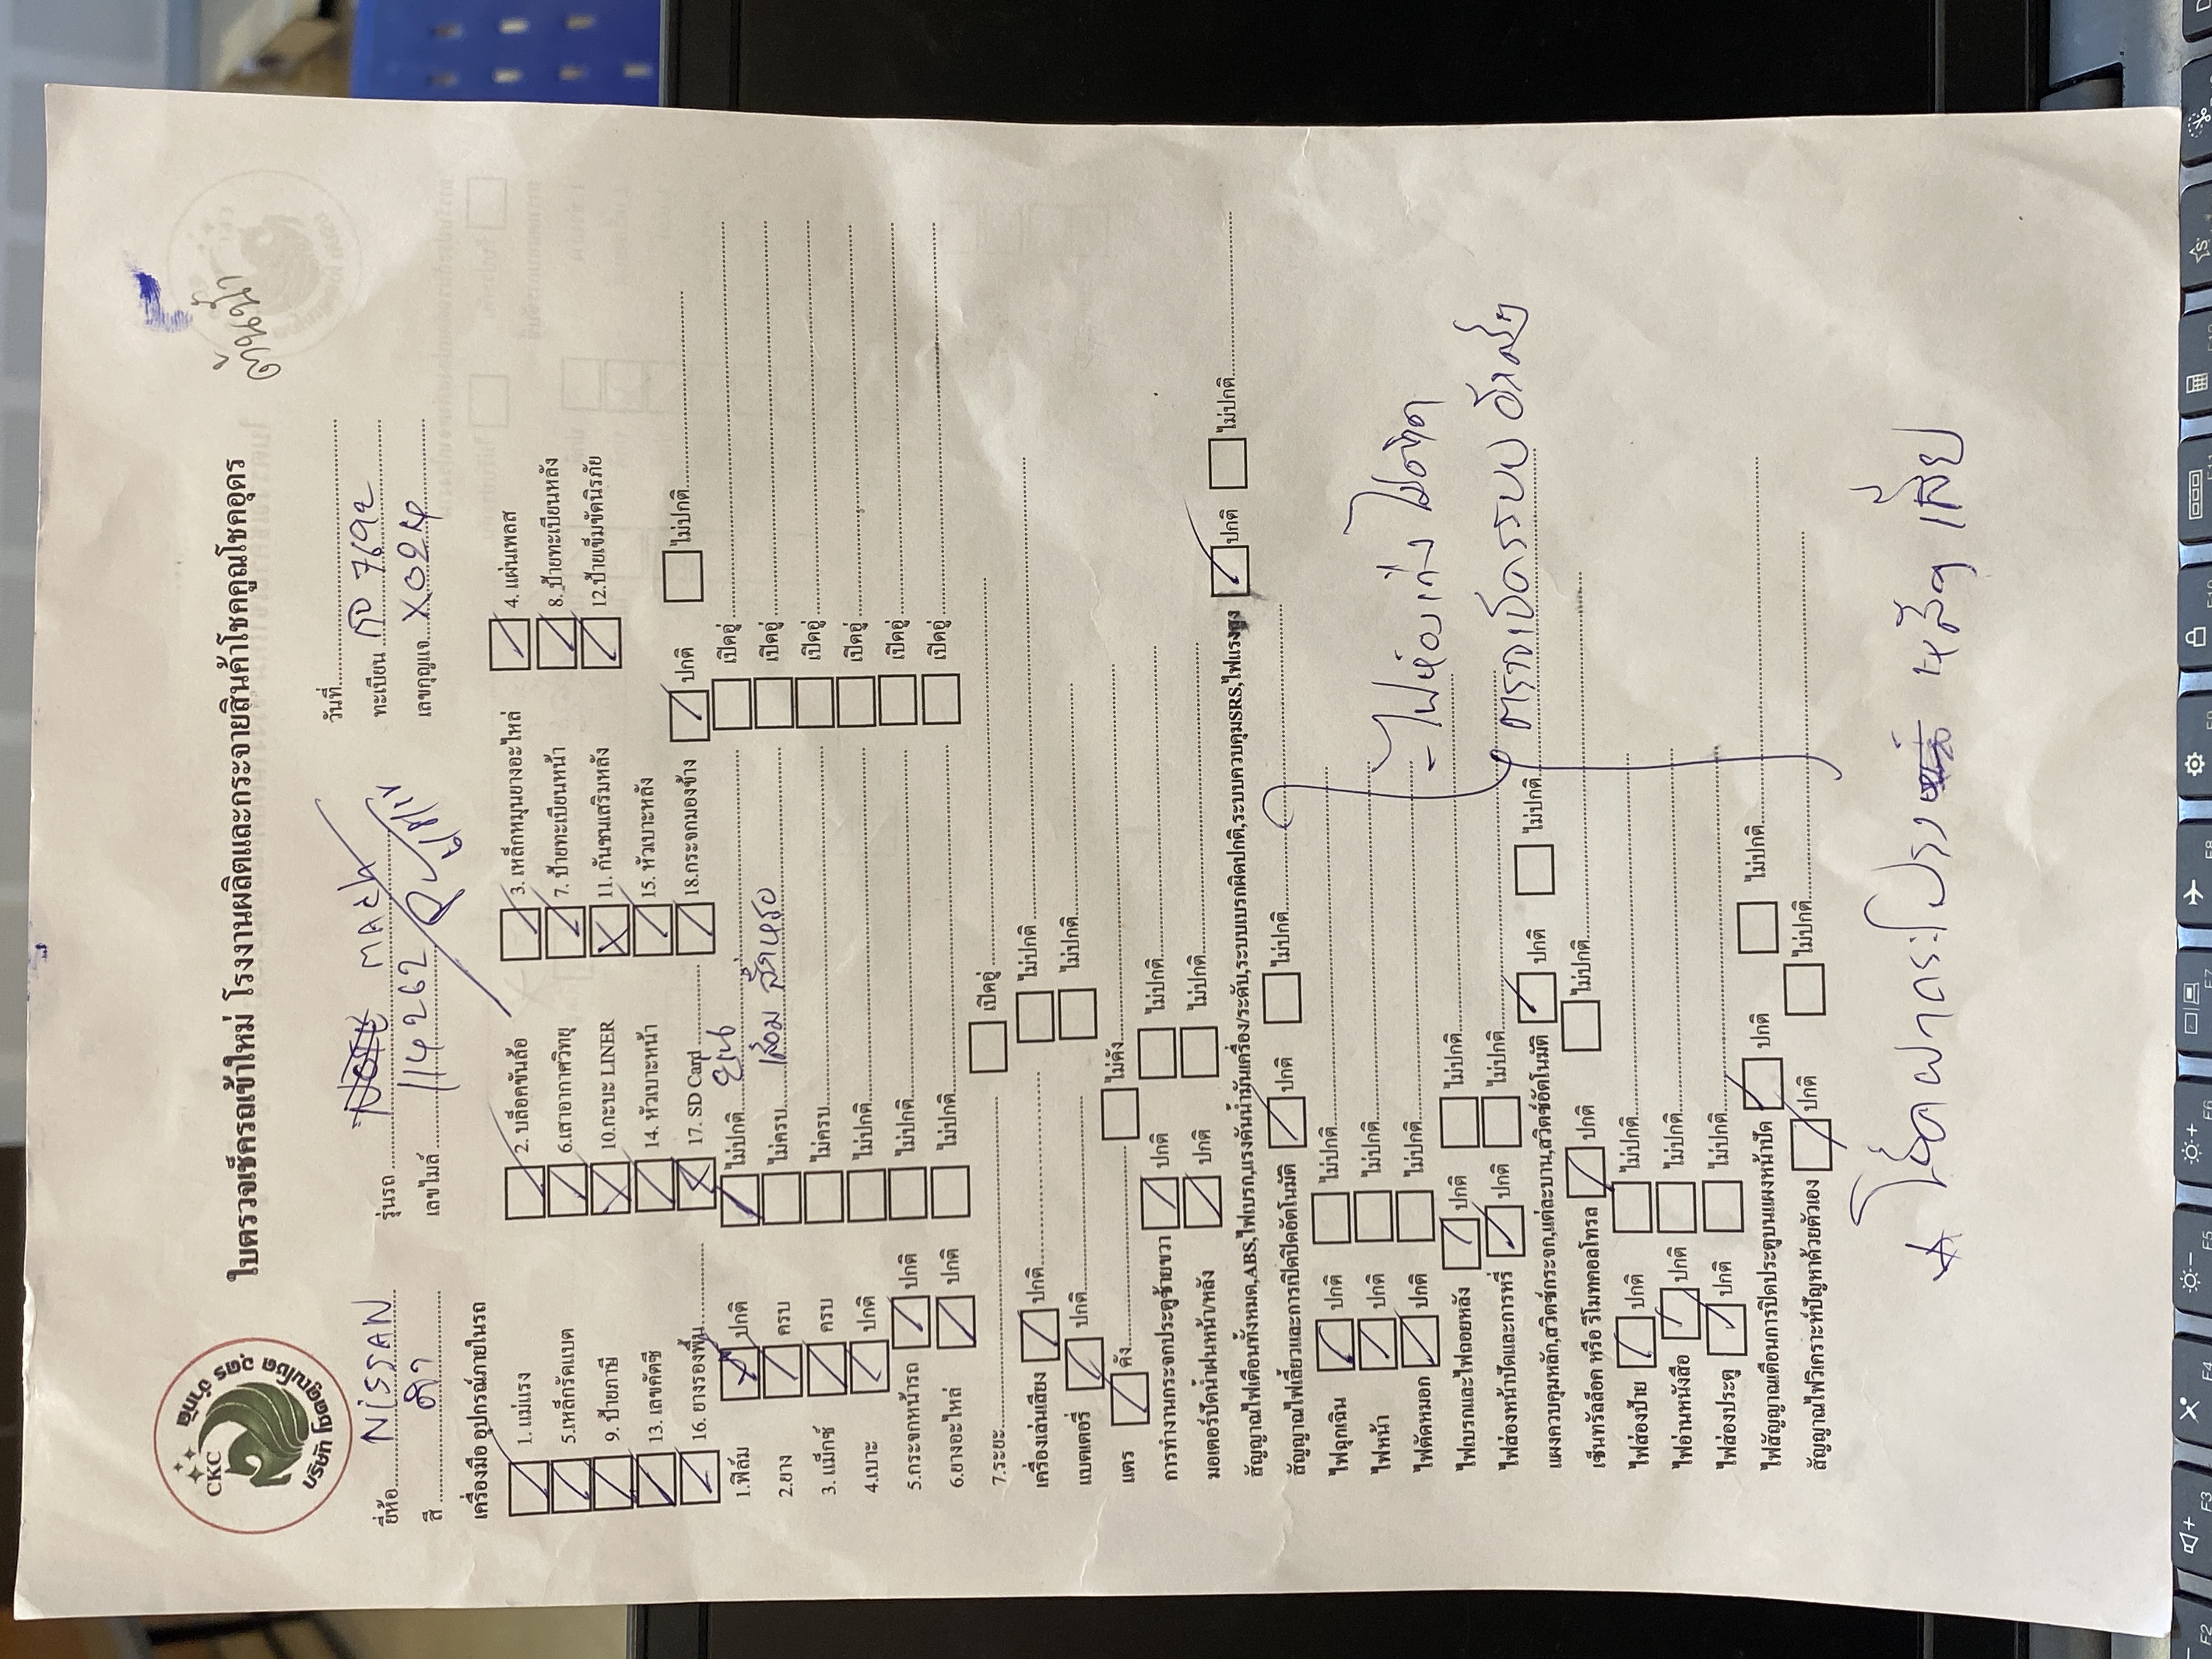 CKC
บริษัท โชคคูณโชค อุดร จำกัด
ใบตรวจเช็ครถเข้าใหม่ โรงงานผลิตและกระจายสินค้าโชคคูณโชคอุดร
ยี่ห้อ NISSAN รุ่นรถ MARCH วันที่
สี ดำ เลขไมล์ 114262 ทะเบียน 7692
เลขกุญแจ
เครื่องมือ อุปกรณ์ภายในรถ
1. แม่แรง 2. บล็อคขันล้อ 3. เหล็กหมุนยางอะไหล่ 4. แผ่นเพลส
5.เหล็กรัดแบต 6.เสาอากาศวิทยุ 7. ป้ายทะเบียนหน้า 8.ป้ายทะเบียนหลัง
9. ป้ายภาษี 10.กะบะ LINER 11. กันชนเสริมหลัง 12.ป้ายเข็มขัดนิรภัย
13. เลขคัดซี 14. หัวเบาะหน้า 15. หัวเบาะหลัง
16. ยางรองพื้น 17. SD Card 18.กระจกมองข้าง ปกติ ไม่ปกติ
1.ฟิล์ม ปกติ ไม่ปกติ เปิดอู่
2.ยาง ครบ ไม่ครบ เปิดอู่
3. แม็กซ์ ครบ ไม่ครบ เปิดอู่
4.เบาะ ปกติ ไม่ปกติ เปิดอู่
5.กระจกหน้ารถ ปกติ ไม่ปกติ เปิดอู่
6.ยางอะไหล่ ปกติ ไม่ปกติ เปิดอู่
7.ระยะ เปิดอู่
เครื่องเล่นเสียง ปกติ ไม่ปกติ
แบตเตอรี่ ปกติ ไม่ปกติ
แตร ดัง ไม่ดัง
การทำงานกระจกประตูซ้ายขวา ปกติ ไม่ปกติ
มอเตอร์ปัดน้ำฝนหน้า/หลัง ปกติ ไม่ปกติ
สัญญาณไฟเตือนทั้งหมด,ABS,ไฟเบรก,แรงดันน้ำมันเครื่อง/ระดับ,ระบบเบรกผิดปกติ,ระบบควบคุมSRS,ไฟแรงสูง ปกติ ไม่ปกติ
สัญญาณไฟเลี้ยวและการเปิดปิดอัตโนมัติ ปกติ ไม่ปกติ
ไฟฉุกเฉิน ปกติ ไม่ปกติ
ไฟหน้า ปกติ ไม่ปกติ
ไฟตัดหมอก ปกติ ไม่ปกติ
- ไฟห้องเก๋ง ไม่ติด
ไฟเบรกและไฟถอยหลัง ปกติ ไม่ปกติ
ไฟส่องหน้าปัดและการหรี่ ปกติ ไม่ปกติ
แผงควบคุมหลัก,สวิตซ์กระจก,แต่ละบาน,สวิตซ์อัตโนมัติ ปกติ ไม่ปกติ
เซ็นทรัลล็อค หรือ รีโมทคอลโทรล ปกติ ไม่ปกติ
ไฟส่องป้าย ปกติ ไม่ปกติ
ไฟอ่านหนังสือ ปกติ ไม่ปกติ
ไฟส่องประตู ปกติ ไม่ปกติ
ไฟสัญญาณเตือนการปิดประตูบนแผงหน้าปัด ปกติ ไม่ปกติ
สัญญาณไฟวิเคราะห์ปัญหาด้วยตัวเอง ปกติ ไม่ปกติ